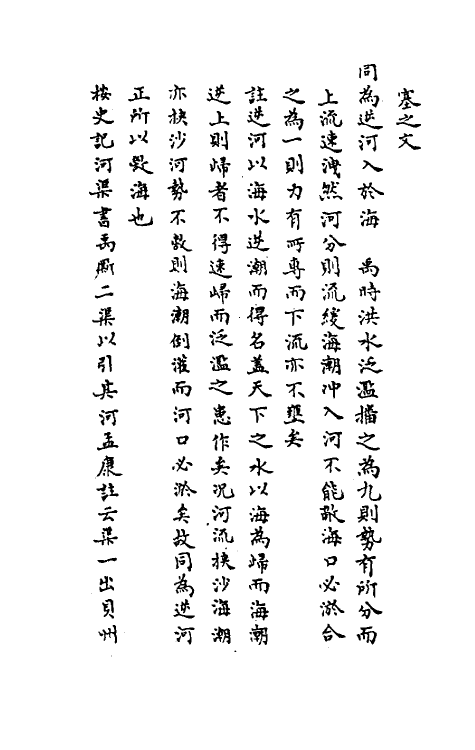 塞之文
同為逆河入於海　禹時洪水泛濫播之為九則勢有所分而
上流速洩然河分則流緩海潮冲入河不能敵海口必淤合
之為一則力有所專而下流亦不壅矣
註逆河以海水逆潮而得名蓋天下之水以海為歸而海潮
逆上則歸者不得速歸而泛濫之患作矣况河流挾沙海潮
亦挾沙河勢不敵則海潮倒灌而河口必淤矣故同為逆河
正所以敵海也
按史記河渠書禹厮二渠以引其河孟康註云渠一出貝州